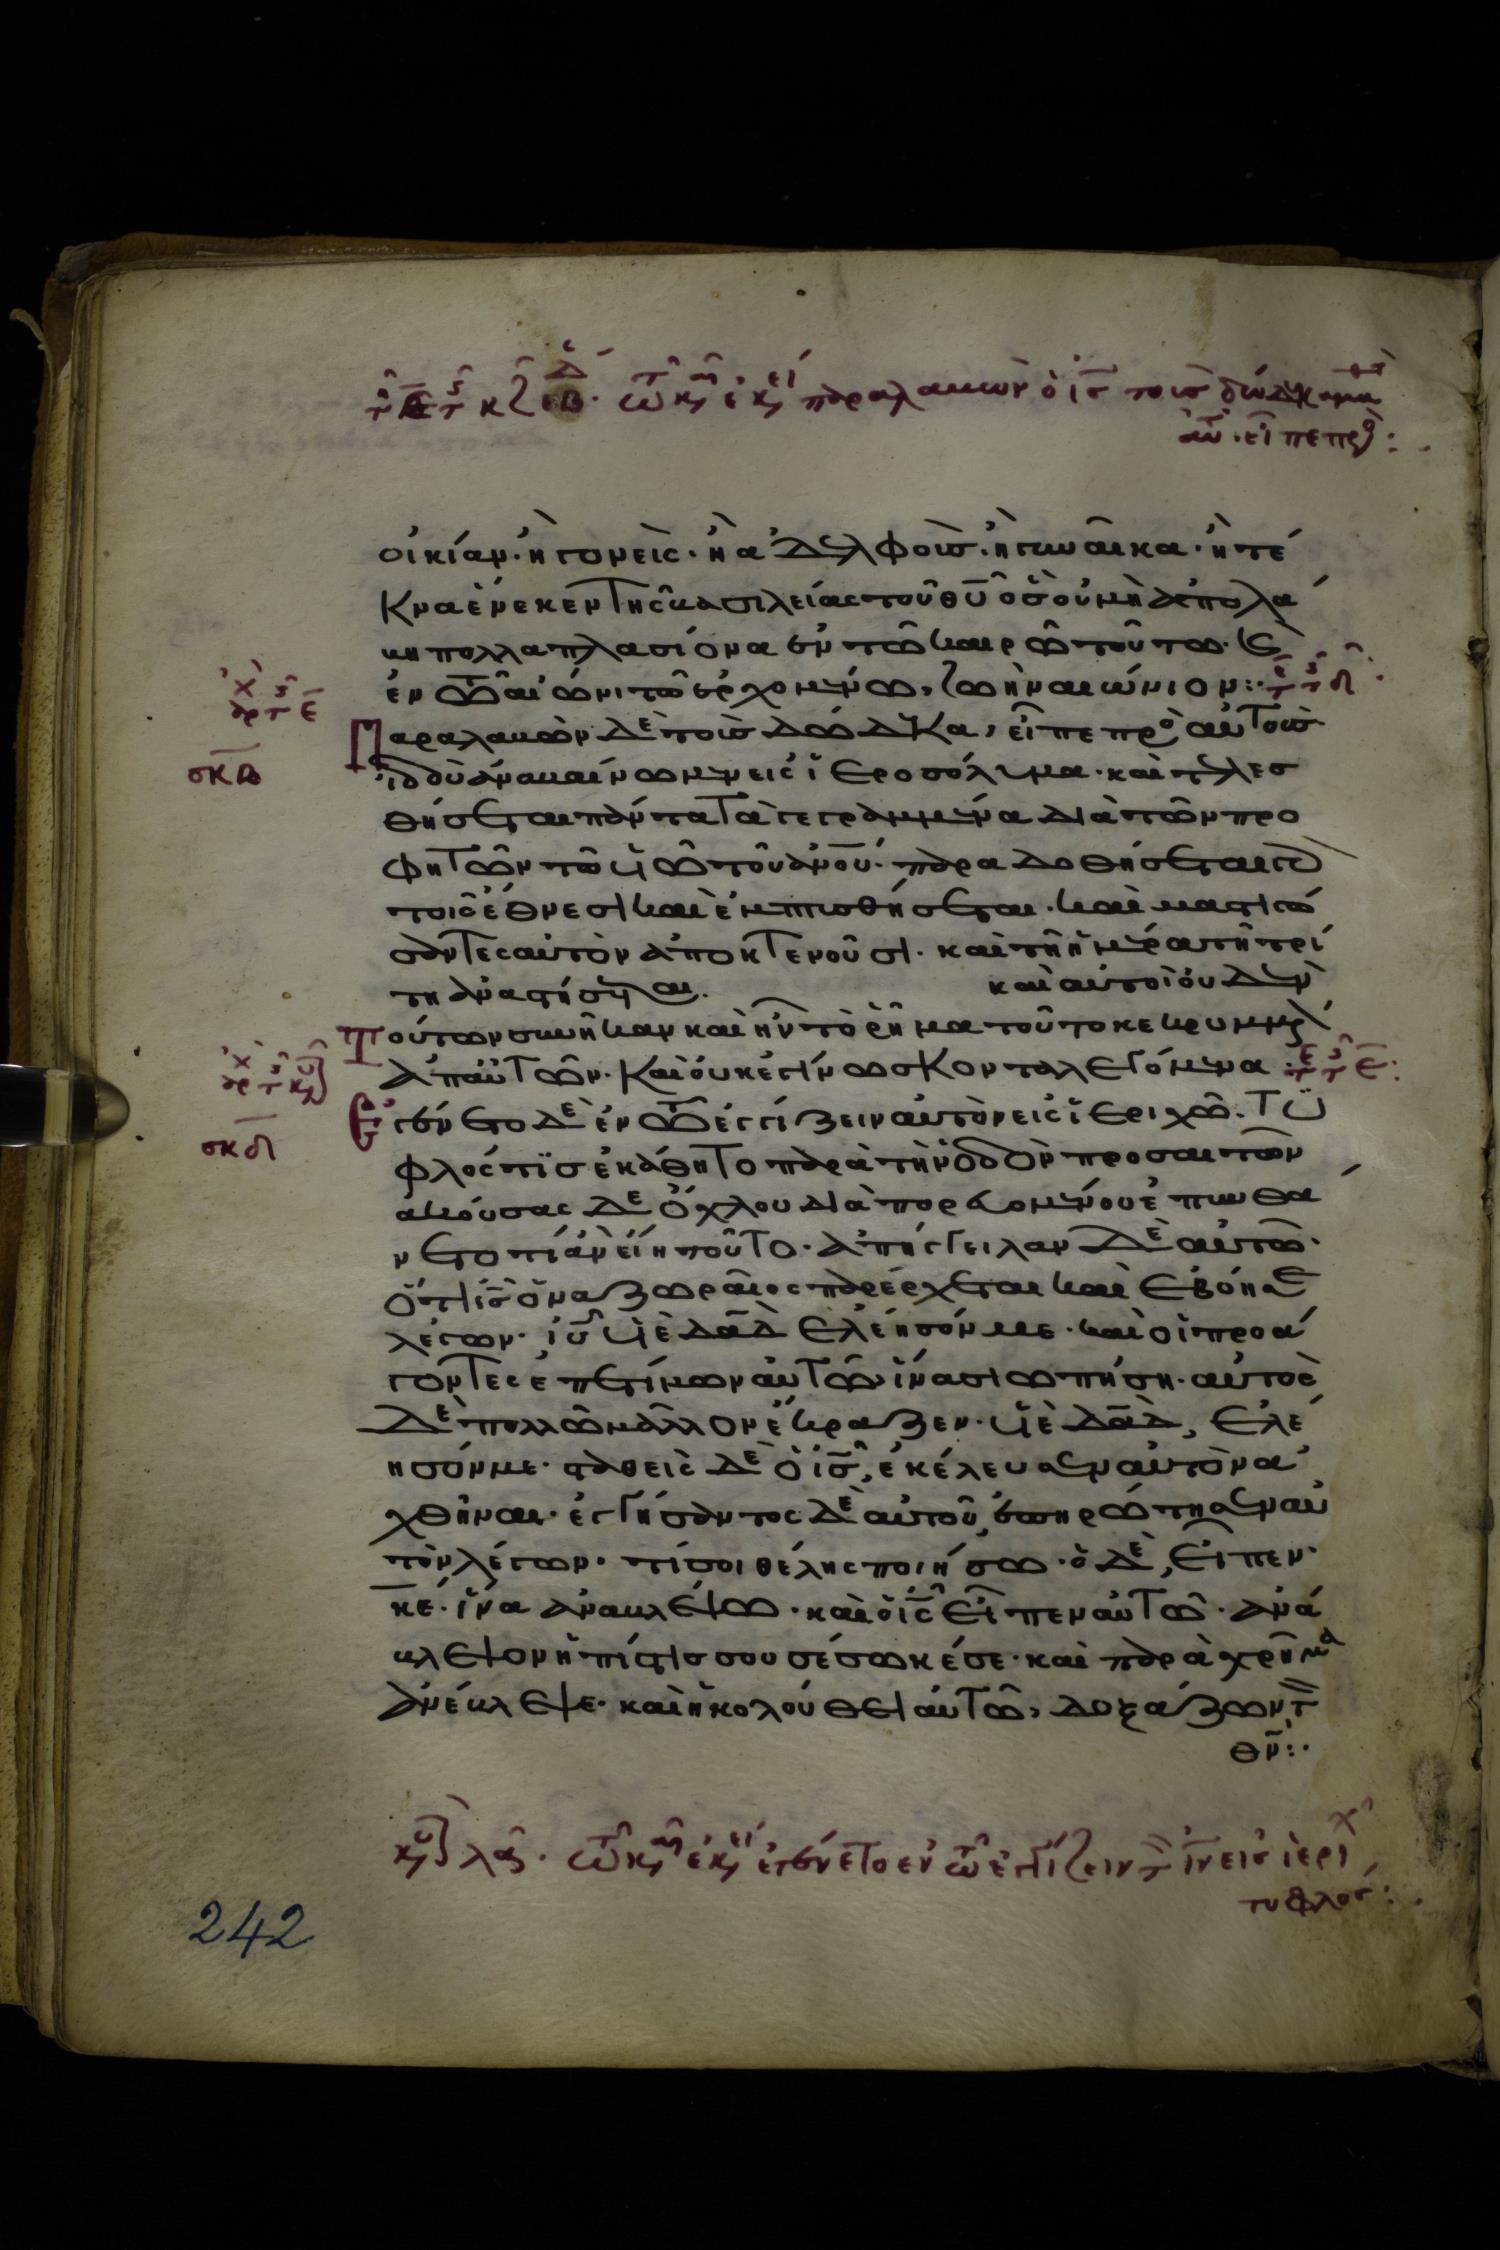 τῷ καιρῷ ἐκείνῳ παραλαβὼν ὁ ις τοὺς δώδεκα μα
αυτ. εἶπε πρὸ:
οἰκίαν· ἢ γονεῖς· ἢ ἀδελφοὺς· ἢ γυναῖκα· ἢ τέ
κνα ἕνεκεν τῆς βασιλείας τοῦ θυ ὃς οὐ μὴ ἀπολά
βη πολλαπλασίονα ἐν τῶ καιρῶ τούτω· καὶ
ἐν τῶ αἰῶνι τῶ ἐρχομένω, ζωὴν αἰώνιον:·
αρχ ε
σκβ
Παραλαβὼν δὲ τοὺς δώδεκα, εἶπε πρὸ αὐτοὺς
ἰδοὺ ἀναβαίνωμεν εἰς ἱεροσόλυμα· καὶ τελεσ
θήσεται πάντα τὰ γεγραμμένα διὰ τῶν προ
φητῶν τῶ υἱῶ τοῦ ανου· παραδοθήσεται γὰρ
τοῖς ἔθνεσι καὶ ἐμπαιχθήσεται· καὶ μαστιγώ
σαντες αὐτὸν ἀποκτενοῦσι· καὶ τῆ ἡμέρα τῆ τρί
τη ἀναστήσεται. καὶ αὐτοὶ οὐδὲν
τούτων συνῆκαν καὶ ἦν τὸ ῥῆμα τοῦτο κεκρυμμέν
ἀπ' αὐτῶν· καὶ οὐκ ἐγίνωσκον τα λεγόμενα:
σκδ
Ἐγένετο δὲ ἐν τῶ ἐγγίζειν αὐτὸν εἰς ἱεριχῶ· Τυ
φλός τις ἐκάθητο παρὰ τὴν ὁδὸν προσαιτῶν
ἀκούσας δὲ ὄχλου διαπορευομένου ἐπυνθά
νετο τί ἂν εἴη τοῦτο· ἀπήγγειλαν δὲ αὐτῶ·
ὅτι ις ὁ ναζωραῖος παρέρχεται καὶ ἐβόησε
λέγων· ιυ υἱὲ δαδ ἐλέησόν με· καὶ οἱ προά
γοντες ἐπετίμων αὐτῶ ἵνα σιωπήση· αὐτὸς
δὲ πολλῶ μᾶλλον ἔκραζεν· υἱὲ δαδ, ἐλέ
ησόν με· σταθεὶς δὲ ὁ ις, ἐκέλευσεν αὐτὸν ἀ
χθῆναι· ἐγγήσαντος δὲ αὐτοῦ, ἐπηρώτησεν αὐ
τὸν λέγων· τί σοι θέλης ποιήσω· ὁ δὲ, εἶπεν·
κε· ἵνα ἀναβλέψω· καὶ ὁ ις εἶπεν αὐτῶ· ἀνά
βλεψον ἡ πίστις σου σέσωκέ σε· καὶ παραχρῆμα
ἀνέβλεψε· καὶ ἠκολούθει αὐτῶ, δοξάζων τ
θν:·
τῷ καιρῷ ἐκείνῳ ἐγένετο ἐν τῷ ἐγγίζειν τ ιν εἰς ἱεριχ
τυφλός:
242